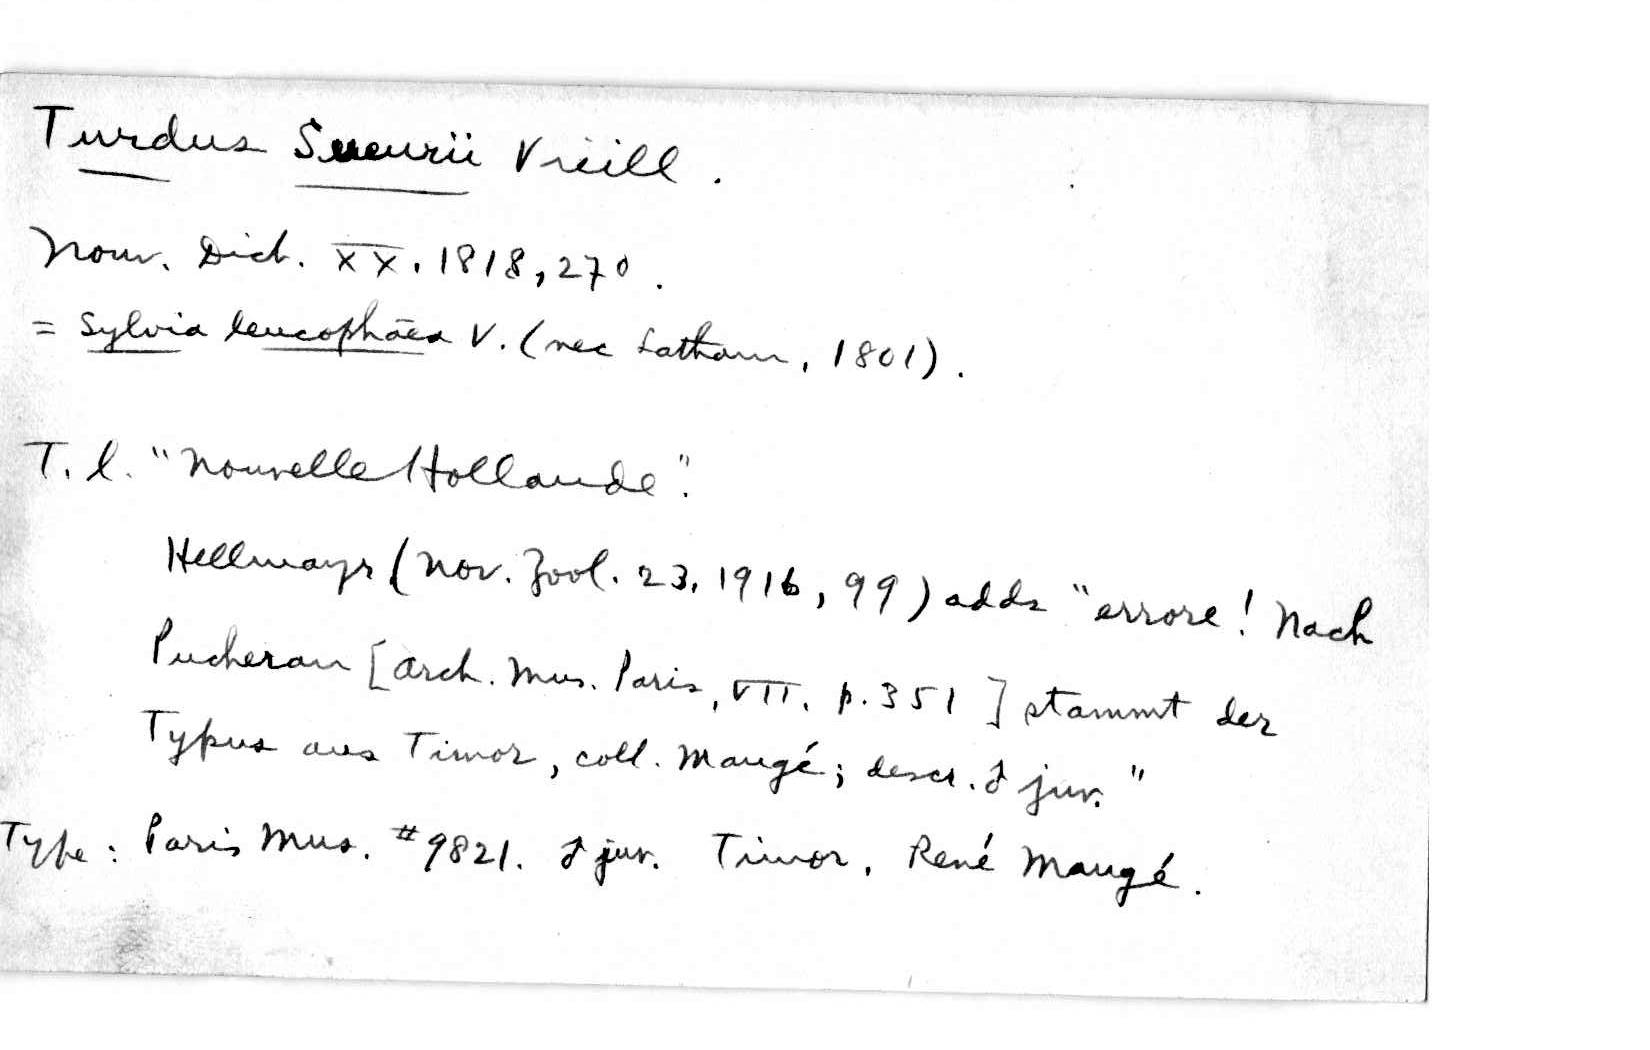 Turdus Sueurii Vieill.
Nouv. Dict. XX. 1818, 270.
= Sylvia leucophāea V. (nec Latham, 1801).
T. l. "Nouvelle Hollande".
Hellmayr (Nov. Zool. 23, 1916, 99) adds "errore! Nach
Pucheran [Arch. Mus. Paris, VII. p. 351] stammt der
Typus aus Timor, coll. Maugé; descr. ♂ juv."
Type: Paris Mus. #9821. ♂ juv. Timor, René Maugé.